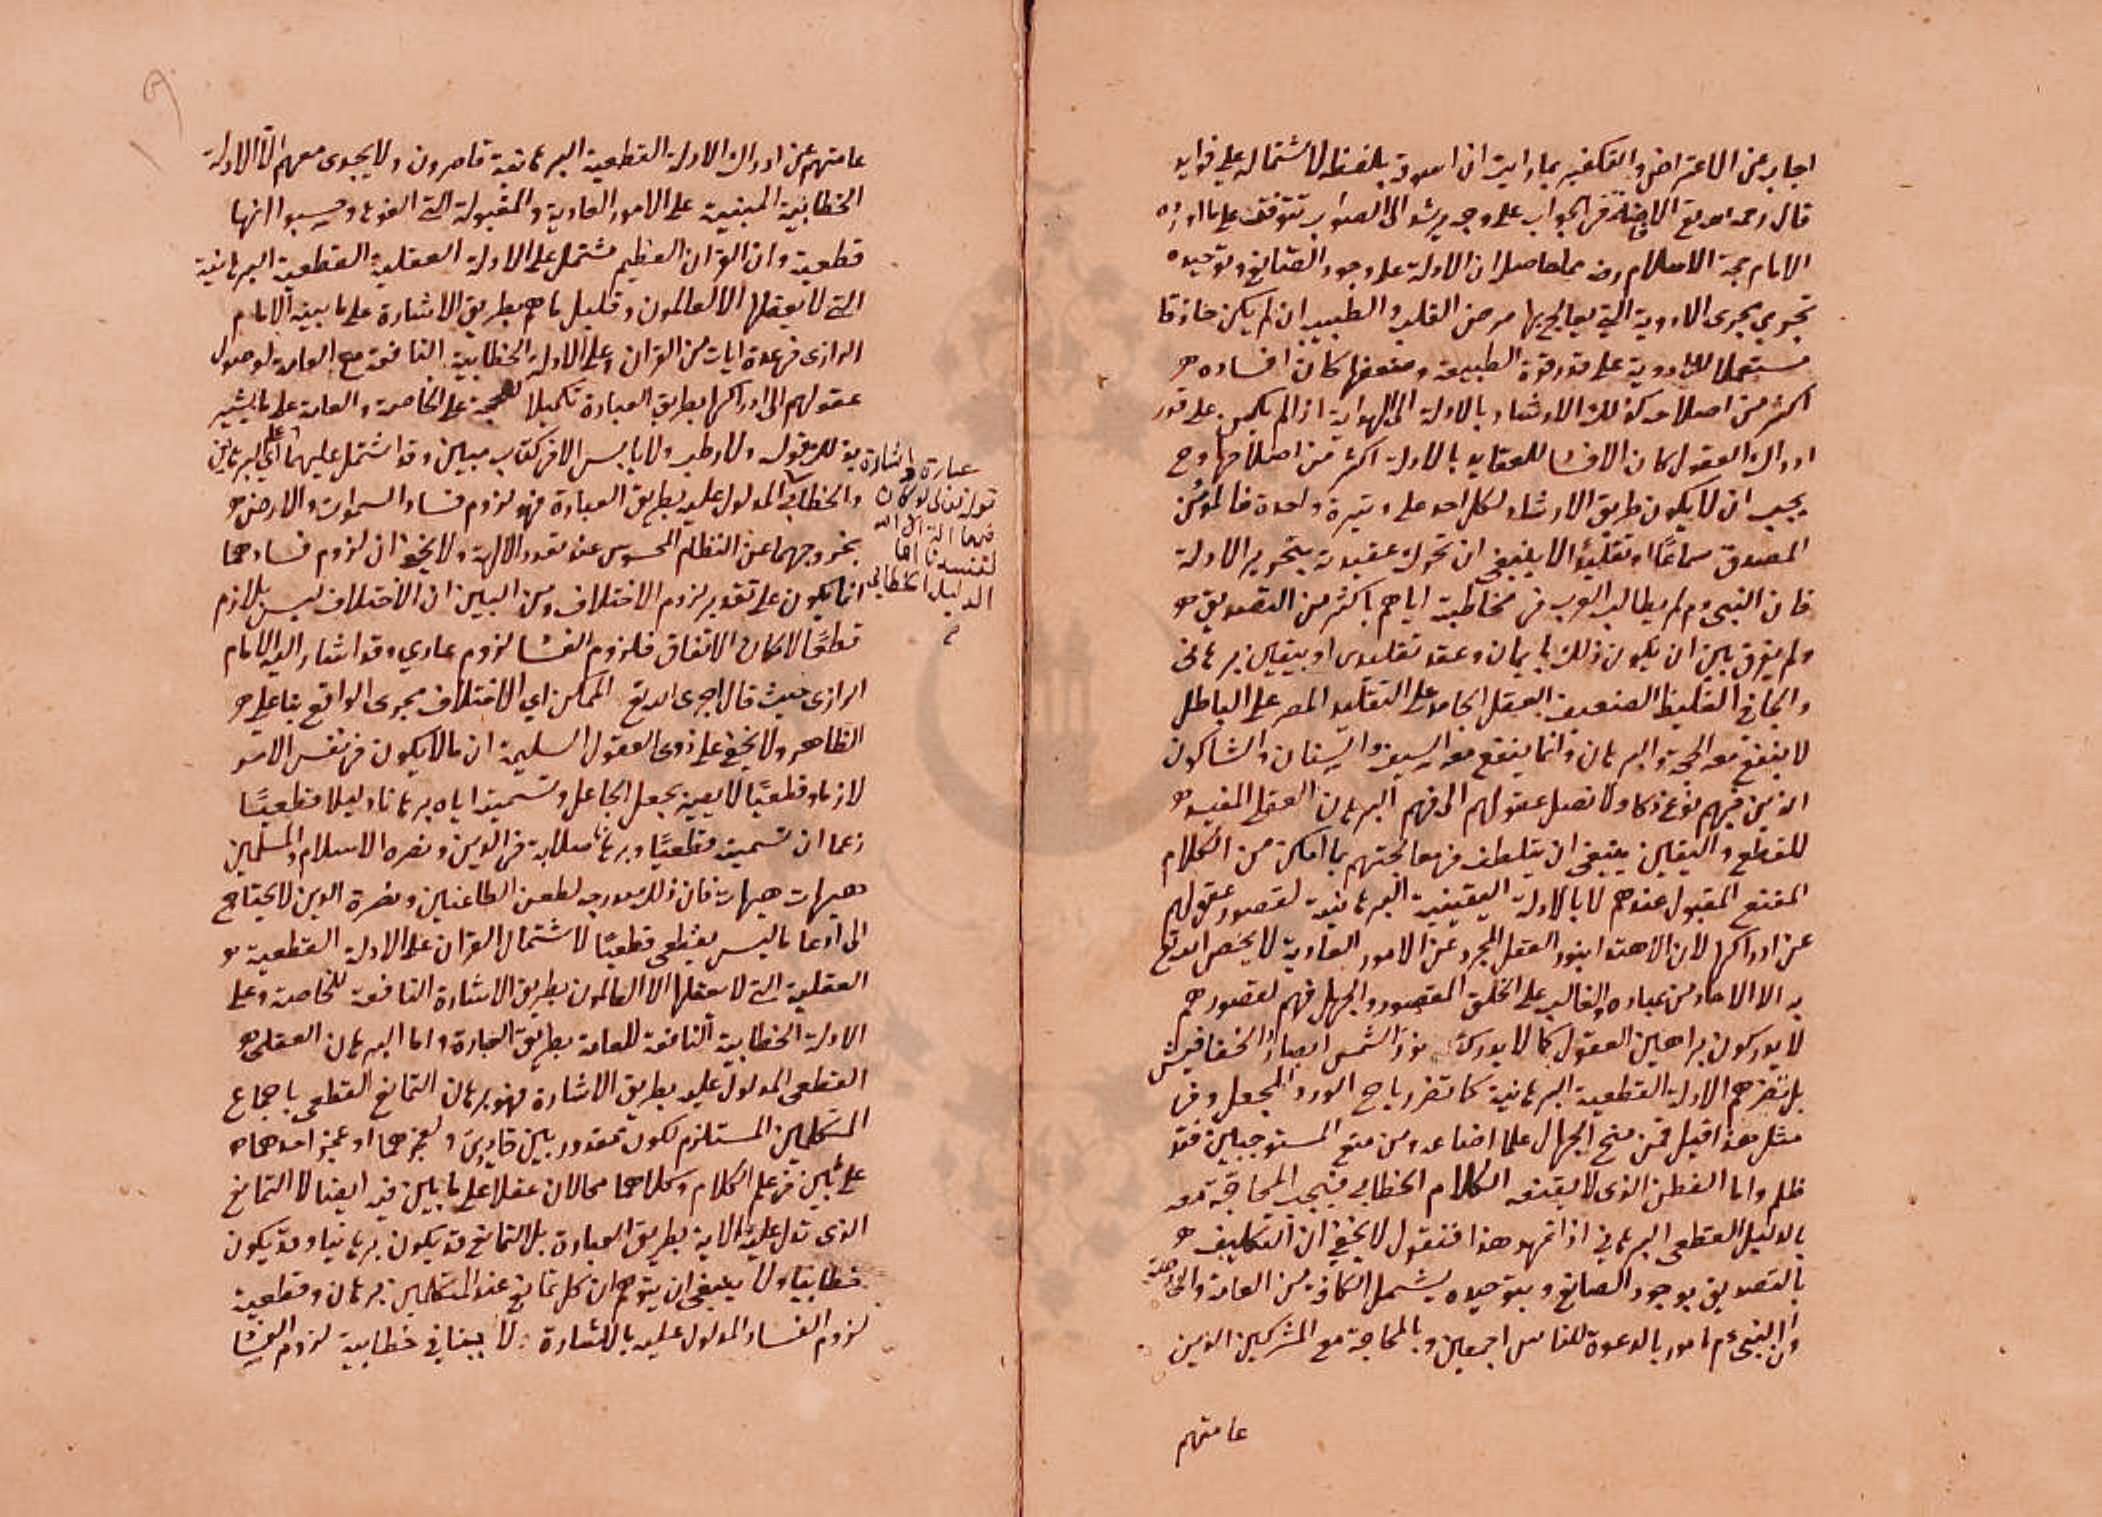 اجاب عن الاعتراض والتكفير بما رايت ان اسوقه بلفظه لاشتماله على فوايد
قال رحمه الله تع الافاضة في الجواب على وجه يرشد الى الصواب تتوقف على ما اورده
الامام حجة الاسلام رضه مما حاصله ان الادلة على وجود الصانع وتوحيده
تجري مجرى الادوية التي يعالج بها مرض القلب والطبيب ان لم يكن حاذقا
مستعملا للادوية على قدر قوة الطبيعة وضعفها كان افساده
اكثر من اصلاحه كذلك الارشاد بالادلة الى الهداية اذا لم يكن على قدر
ادراك العقول كان الافساد للعقايد بالادلة اكثر من اصلاحها وح
يجب ان لا يكون طريق الارشاد لكل احد على وتيرة واحدة فالمؤمن
المصدق سماعا او تقليدا لا ينبغي ان تحرك عقيدته بتحرير الادلة
فان النبي عم لم يطالب العرب في مخاطبته اياهم باكثر من التصديق
ولم يفرق بين ان يكون ذلك بايمان وعقد تقليدى او بيقين برهانى
والجافي الغليظ الضعيف العقل الجامد على التقليد المصر على الباطل
لا ينفع معه الحجة والبرهان وانما ينفع معه السيف والسنان والشاكون
الذين فيهم نوع ذكا ولا تصل عقولهم الى فهم البرهان العقلى المفيد
للقطع واليقين ينبغي ان يتلطف في معالجتهم بما امكن من الكلام
المقنع المقبول عندهم لا بالادلة اليقينية البرهانية لقصور عقولهم
عن ادراكها لان الاهتدا بنور العقل المجرد عن الامور العادية لا يخص الله تع
به الا الاحاد من عباده والغالب على الخلق القصور والجهل فهم لقصورهم
لا يدركون براهين العقول كما لا يدرك نور الشمس ابصار الخفافيش
بل تضرهم الادلة القطعية البرهانية كما تضر رياح الورد الجعل وفي
مثل هذا قيل فمن منح الجهال علما اضاعه ومن منع المستوجبين فقد
ظلم واما الفطن الذى لا يقنعه الكلام الخطابي فيجب المحاجة معه
بالدليل القطعى البرهاني اذا تمهد هذا فنقول لا يخفى ان التكليف
بالتصديق بوجود الصانع وبتوحيده يشمل الكافة من العامة والخاصة
وان النبي عم مامور بالدعوة للناس اجمعين وبالمحاجة مع المشركين الذين
عامتهم
عامتهم عن ادراك الادلة القطعية البرهانية قاصرون ولا يجدى معهم الا الادلة
الخطابية المبنية على الامور العادية والمقبولة التي الفوها وحسبوا انها
قطعية وان القران العظيم مشتمل على الادلة العقلية القطعية البرهانية
التي لا يعقلها الا العالمون وقليل ما هم بطريق الاشارة على ما بينه الامام
الرازى في عدة ايات من القران وعلى الادلة الخطابية النافعة مع العامة لوصول
عقولهم الى ادراكها بطريق العبارة تكميلا للحجة على الخاصة والعامة على ما يشير
بذلك قوله ولا رطب ولا يابس الا في كتاب مبين وقد اشتمل عليهما اي البرهان
عبارة واشارة
قوله تعالى لو كان
فيهما الهة الا الله
لفسدتا اما
الدليل الخطابي
والخطابي المدلول عليه بطريق العبارة فهو لزوم فساد السموات والارض
بخروجهما عن النظام المحسوس عند تعدد الالهة ولا يخفى ان لزوم فسادهما
انما يكون على تقدير لزوم الاختلاف ومن البين ان الاختلاف ليس بلازم
قطعا لامكان الاتفاق فلزوم الفساد لزوم عادي وقد اشار اليه الامام
الرازى حيث قال اجرى الله تع الممكن اي الاختلاف مجرى الواقع بناء على
الظاهر ولا يخفى على ذوى العقول السليمة ان ما لا يكون في نفس الامر
لازما وقطعيا لا يصير بجعل الجاعل وتسميته اياه برهانا دليلا قطعيا
زعما ان تسميته قطعيا وبرهانا صلابة في الدين ونصره الاسلام والمسلمين
هيهات هيهات فان ذلك مدرجه لطعن الطاعنين ونصرة الدين لا يحتاج
الى ادعا ما ليس بقطعى قطعيا لاشتمال القران على الادلة القطعية
العقلية التي لا يعقلها الا العالمون بطريق الاشارة النافعة للخاصة وعلى
الادلة الخطابية النافعة للعامة بطريق العبارة واما البرهان العقلى
القطعى المدلول عليه بطريق الاشارة فهو برهان التمانع القطعى باجماع
المتكلمين المستلزم لكون مقدور بين قادرين ولعجزهما او عجز احدهما
على ما بين في علم الكلام وكلاهما محالان عقلا على ما بين فيه ايضا لا التمانع
الذى تدل عليه الاية بطريق العبارة بل التمانع قد يكون برهانيا وقد يكون
خطابيا ولا ينبغي ان يتوهم ان كل تمانع عند المتكلمين برهان وقطعية
لزوم الفساد المدلول عليه بالاشارة لا ينافي خطابية لزوم الفساد